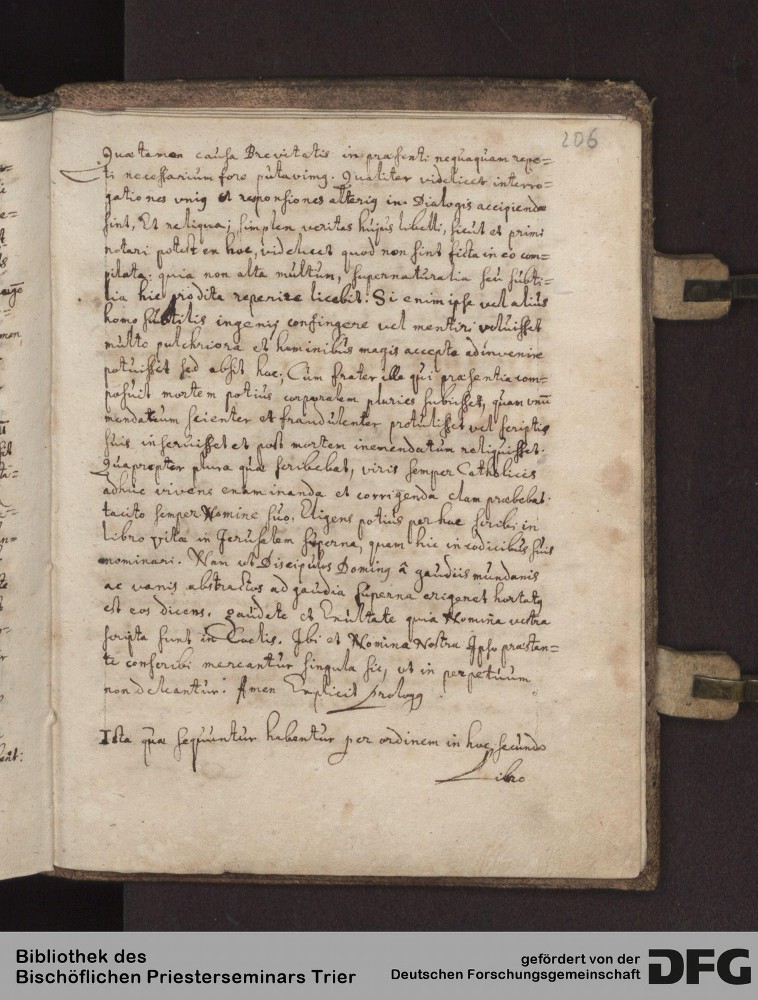 206
Quæ tamen causa Brevitatis in præsenti nequaquam repe=
ti necessarium fore putavimꝰ. Qualiter videlicet interro=
gationes uniꝰ et responsiones alteriꝰ in Dialogis accipiendæ
sint, Et reliqua; simplex veritas hujus libelli, sicut et primi
notari potest ex hoc, videlicet quod non sint ficta in eo com=
pilata: quia non alta multum, supernaturalia seu subti=
lia hic prodita reperire licebit: Si enim ipse vel alius
homo subtilis ingenij confingere vel mentiri voluisset
multo pulchriora et hominibus magis accepta adinvenire
potuisset sed absit hoc; Cum frater ille qui præsentia com=
posuit mortem potius corporalem pluries subiisset, quam unū
mendatium scienter et fraudulenter protulisset vel scriptis
suis inseruisset et post mortem inemendatum reliquisset.
Quapropter plura quæ scribebat, viris semper Catholicis
adhuc vivens examinanda et corrigenda clam præbebat.
tacito semper Nomine suo. Eligens potius per hæc scribi in
libro vitæ in Jerusalem superna, quam hic in codicibus suis
nominari. Nam ut Discipulos Dominꝰ â gaudiis mundanis
ac vanis abstractos ad gaudia superna erigeret hortatꝰ
est eos dicens, gaudete et Exultate quia Nomina vestra
scripta sunt in Cœlis. Ibi et Nomina Nostra Ipso præstan=
te conscribi mereantur singula sic, ut in perpetuum
non deleantur: Amen Explicit Prologꝰ
Ista quæ sequuntur habentur per ordinem in hoc secundo
Libro
Bibliothek des
Bischöflichen Priesterseminars Trier
gefördert von der
Deutschen Forschungsgemeinschaft
DFG